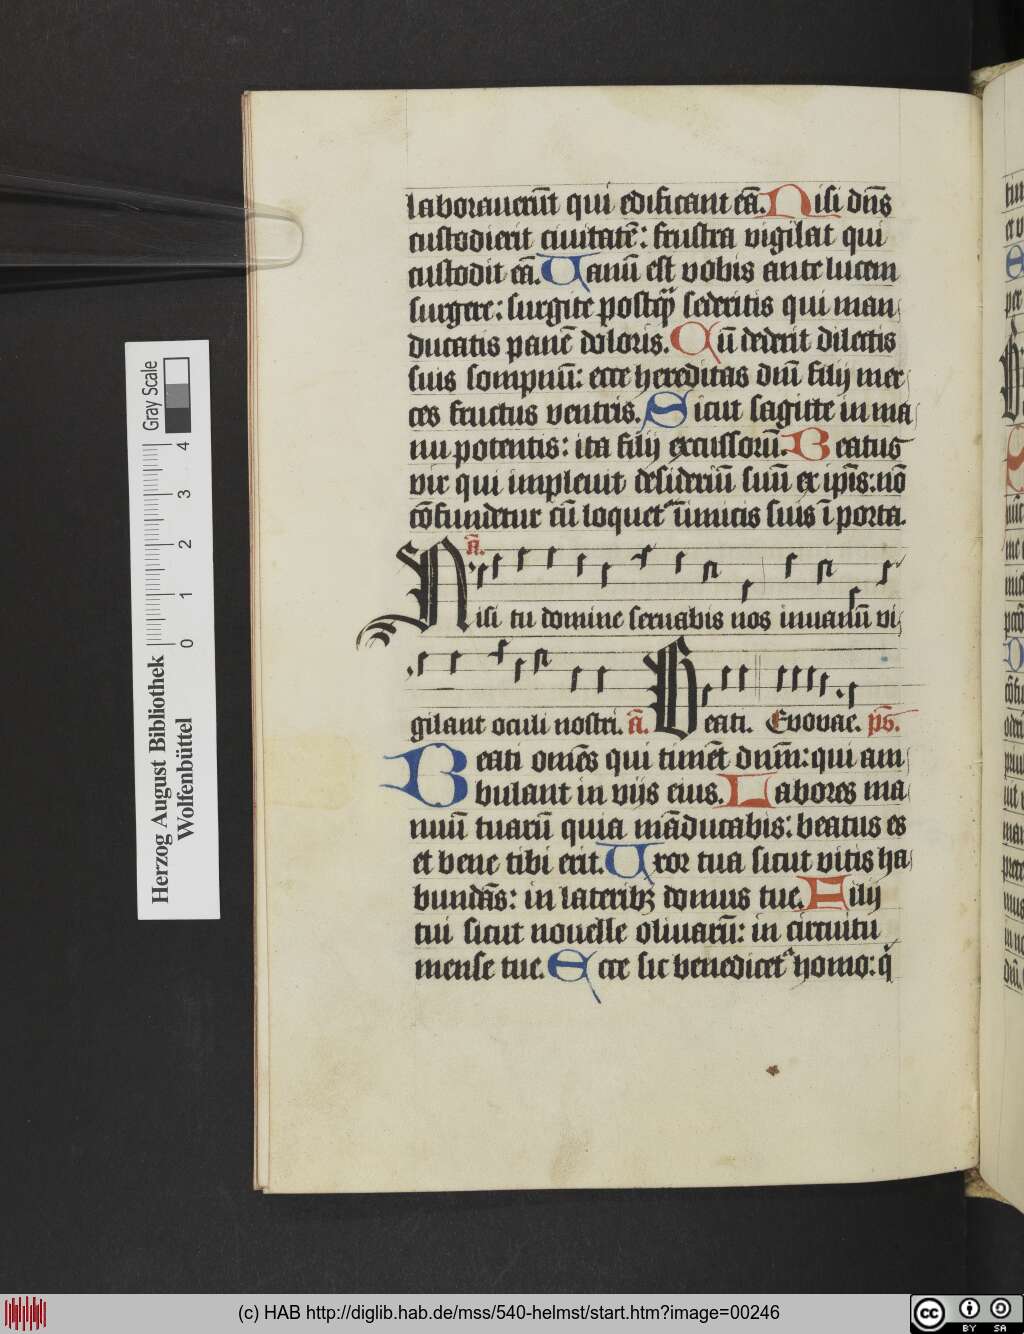 laborauerūt qui edificant eā. Nisi dn̄s
custodierit ciuitatē: frustra vigilat qui
custodit eā. Uanū est vobis ante lucem
surgere: surgite postq̄ sederitis qui man
ducatis panē doloris. Cū dederit dilectis
suis sompnū: ecce hereditas dn̄i filij mer
ces fructus ventris. Sicut sagitte in ma
nu potentis: ita filij excussorū. Beatus
vir qui impleuit desideriū suū ex ip̄is: nō
cōfundetur cū loquet᷑ īimicis suis ī porta.
ā.
Nisi tu domine seruabis nos inuanū vi
gilant oculi nostri. ā. Beati. Euouae. ps̄.
Beati om̄es qui timēt dn̄m: qui am
bulant in vijs eius. Labores ma
nuū tuarū quia māducabis: beatus es
et bene tibi erit. Uxor tua sicut vitis ha
bundās: in lateribꝫ domus tue. Filij
tui sicut nouelle oliuarū: in circuitu
mense tue. Ecce sic benedicet᷑ homo: qͥ
Herzog August Bibliothek
Wolfenbüttel
0 1 2 3 4
Gray Scale
(c) HAB http://diglib.hab.de/mss/540-helmst/start.htm?image=00246
cc BY SA